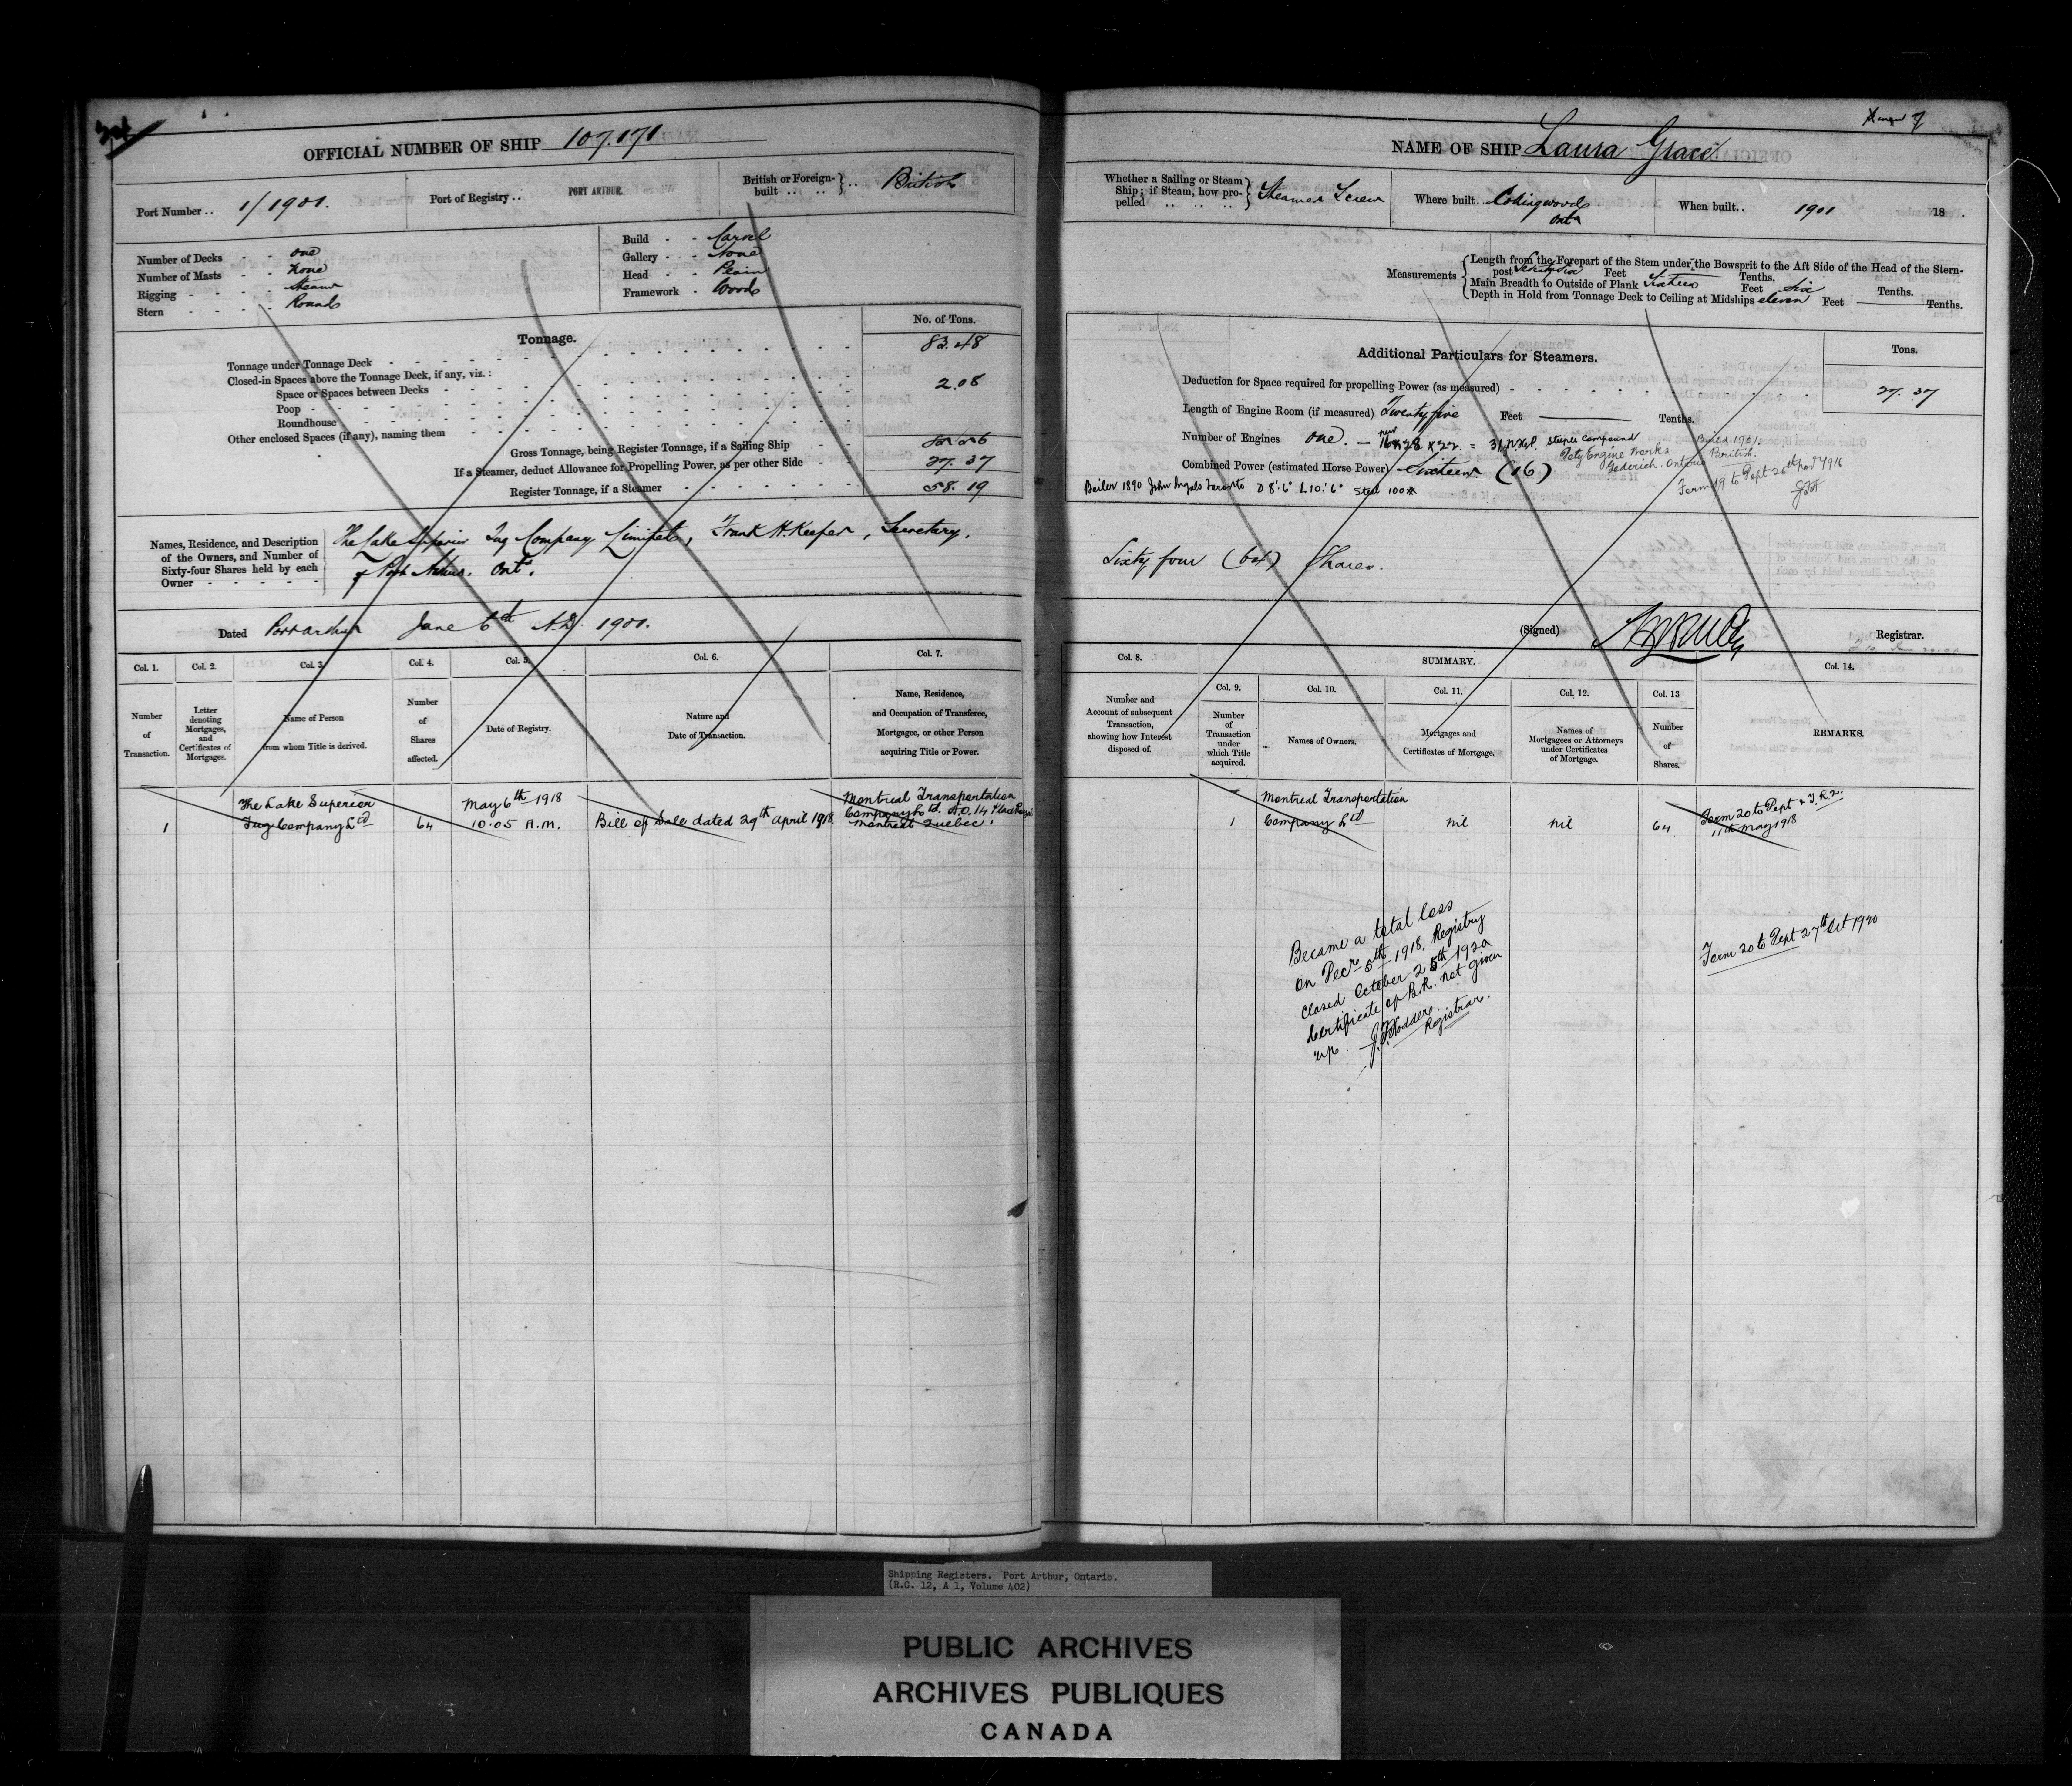 OFFICIAL NUMBER OF SHIP 107.171
Port Number .. 1/1901.
Port of Registry .. PORT ARTHUR.
British or Foreign-built .. .. } .. British
Number of Decks - - one
Number of Masts - - None
Rigging - - - - Steamer
Stern - - - - Round
Build - - Carvel
Gallery - - None
Head - - Plain
Framework - Wood
Tonnage.
No. of Tons.
Tonnage under Tonnage Deck 83.48
Closed-in Spaces above the Tonnage Deck, if any, viz.:
Space or Spaces between Decks 2.08
Poop
Roundhouse
Other enclosed Spaces (if any), naming them
Gross Tonnage, being Register Tonnage, if a Sailing Ship 85.56
If a Steamer, deduct Allowance for Propelling Power, as per other Side 27.37
Register Tonnage, if a Steamer 58.19
Names, Residence, and Description
of the Owners, and Number of
Sixty-four Shares held by each
Owner
The Lake Superior Tug Company Limited, Frank H. Keefer, Secretary.
of Port Arthur. Ont.
Dated Port Arthur June 6th A.D. 1901.
Col. 1. Col. 2. Col. 3. Col. 4. Col. 5. Col. 6. Col. 7.
Number of Transaction.
Letter denoting Mortgages, and Certificates of Mortgages.
Name of Person from whom Title is derived.
Number of Shares affected.
Date of Registry.
Nature and Date of Transaction.
Name, Residence, and Occupation of Transferee, Mortgagee, or other Person acquiring Title or Power.
1
The Lake Superior
Tug Company Ltd
64
May 6th 1918
10.05 A.M.
Bill of Sale dated 29th April 1918.
Montreal Transportation
Company Ltd.
Montreal Quebec.
NAME OF SHIP Laura Grace
Whether a Sailing or Steam
Ship; if Steam, how pro-
pelled
Steamer Screw
Where built .. Collingwood
Ont
When built .. 1901 18 .
Measurements
Length from the Forepart of the Stem under the Bowsprit to the Aft Side of the Head of the Stern-
post Seventy Six Feet Tenths.
Main Breadth to Outside of Plank Sixteen Feet Six Tenths.
Depth in Hold from Tonnage Deck to Ceiling at Midships eleven Feet Tenths.
Additional Particulars for Steamers.
Tons.
Deduction for Space required for propelling Power (as measured) 27.37
Length of Engine Room (if measured) Twenty five Feet Tenths.
Number of Engines one. — new 16 x 28 x 22 = Steeple Compound
Build 1901.
Engine Works
Goderich. Ontario British.
Combined Power (estimated Horse Power) Sixteen (16)
Form 19 to Dept 1916
Boiler 1890 John Inglis Toronto D 8'.6" L 10.'6" Steel 100#
Sixty four (64) Shares.
(Signed)
Registrar.
Col. 8.
SUMMARY.
Col. 9. Col. 10. Col. 11. Col. 12. Col. 13 Col. 14.
Number and Account of subsequent Transaction, showing how Interest disposed of.
Number of Transaction under which Title acquired.
Names of Owners.
Mortgages and Certificates of Mortgage.
Names of Mortgagees or Attorneys under Certificates of Mortgage.
Number of Shares.
REMARKS.
1
Montreal Transportation
Company Ltd
nil
nil
64
Form 20 to Dept
11th May 1918
Became a total loss
on Decr 5th 1918. Registry
closed October 25th 1920
Certificate of B.R. not given
up.
Registrar.
Form 20 to Dept 27th Oct 1920
Shipping Registers. Port Arthur, Ontario.
(R.G. 12, A 1, Volume 402)
PUBLIC ARCHIVES
ARCHIVES PUBLIQUES
CANADA